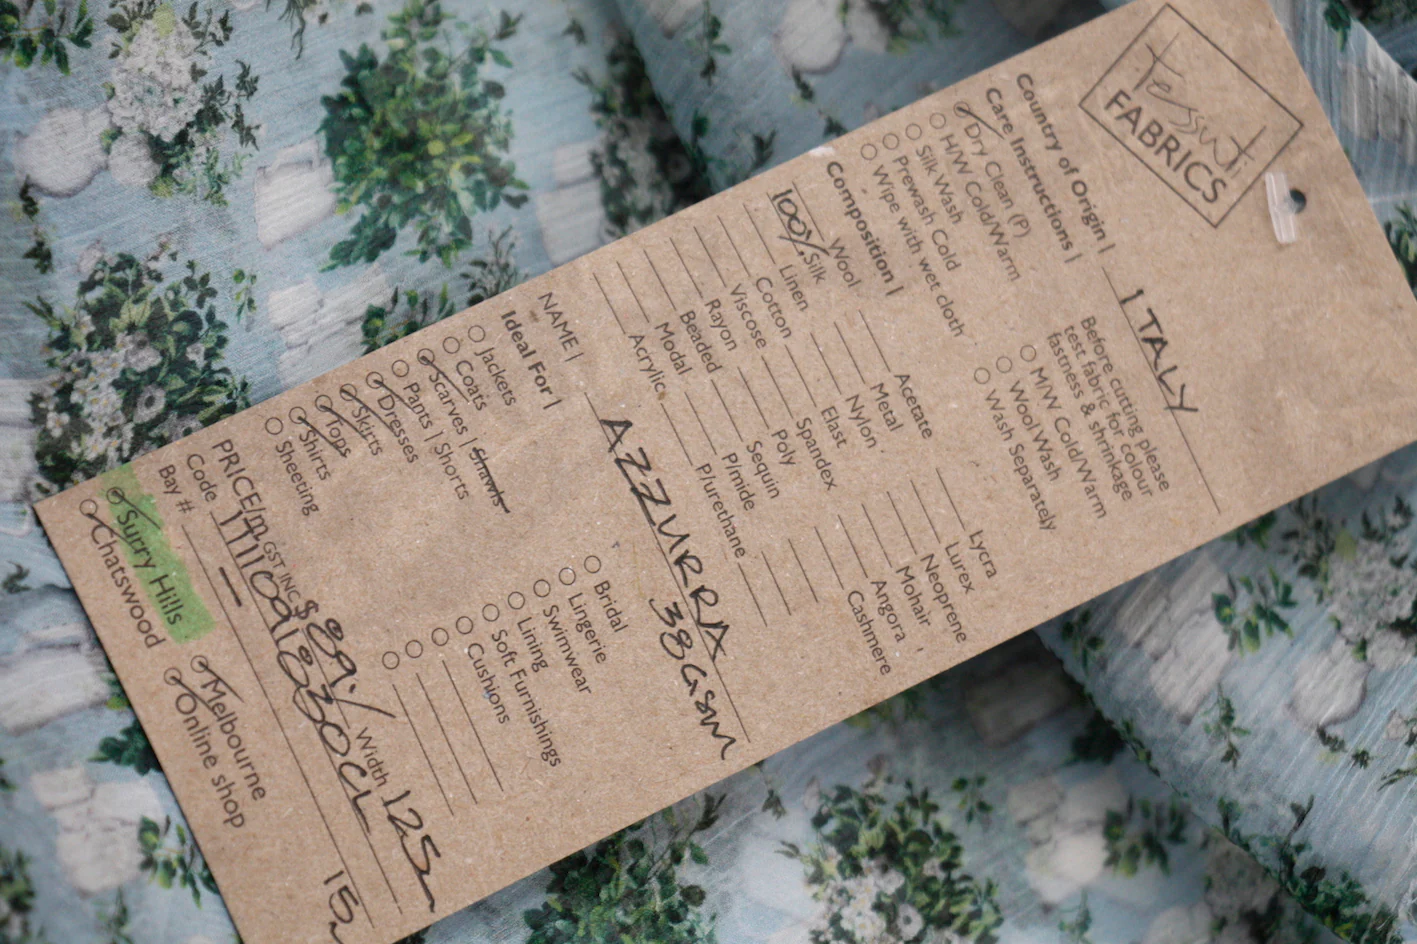 tessuti
FABRICS
Country of Origin | ITALY
Care Instructions |
Dry Clean (P)
H/W Cold/Warm
Silk Wash
Prewash Cold
Wipe with wet cloth
Before cutting please
test fabric for colour
fastness & shrinkage
M/W Cold/Warm
Wool Wash
Wash Separately
Composition |
Wool
100% Silk
Linen
Cotton
Viscose
Rayon
Beaded
Modal
Acrylic
Acetate
Metal
Nylon
Elast
Spandex
Poly
Sequin
P/mide
P/urethane
Lycra
Lurex
Neoprene
Mohair
Angora
Cashmere
NAME | AZZURRA
38GSM
Ideal For |
Jackets
Coats
Scarves | Shawls
Pants | Shorts
Dresses
Skirts
Tops
Shirts
Sheeting
Bridal
Lingerie
Swimwear
Lining
Soft Furnishings
Cushions
PRICE/m GST INC $ 89./ Width 125
Code
Bay # 15
Surry Hills
Chatswood
Melbourne
Online shop